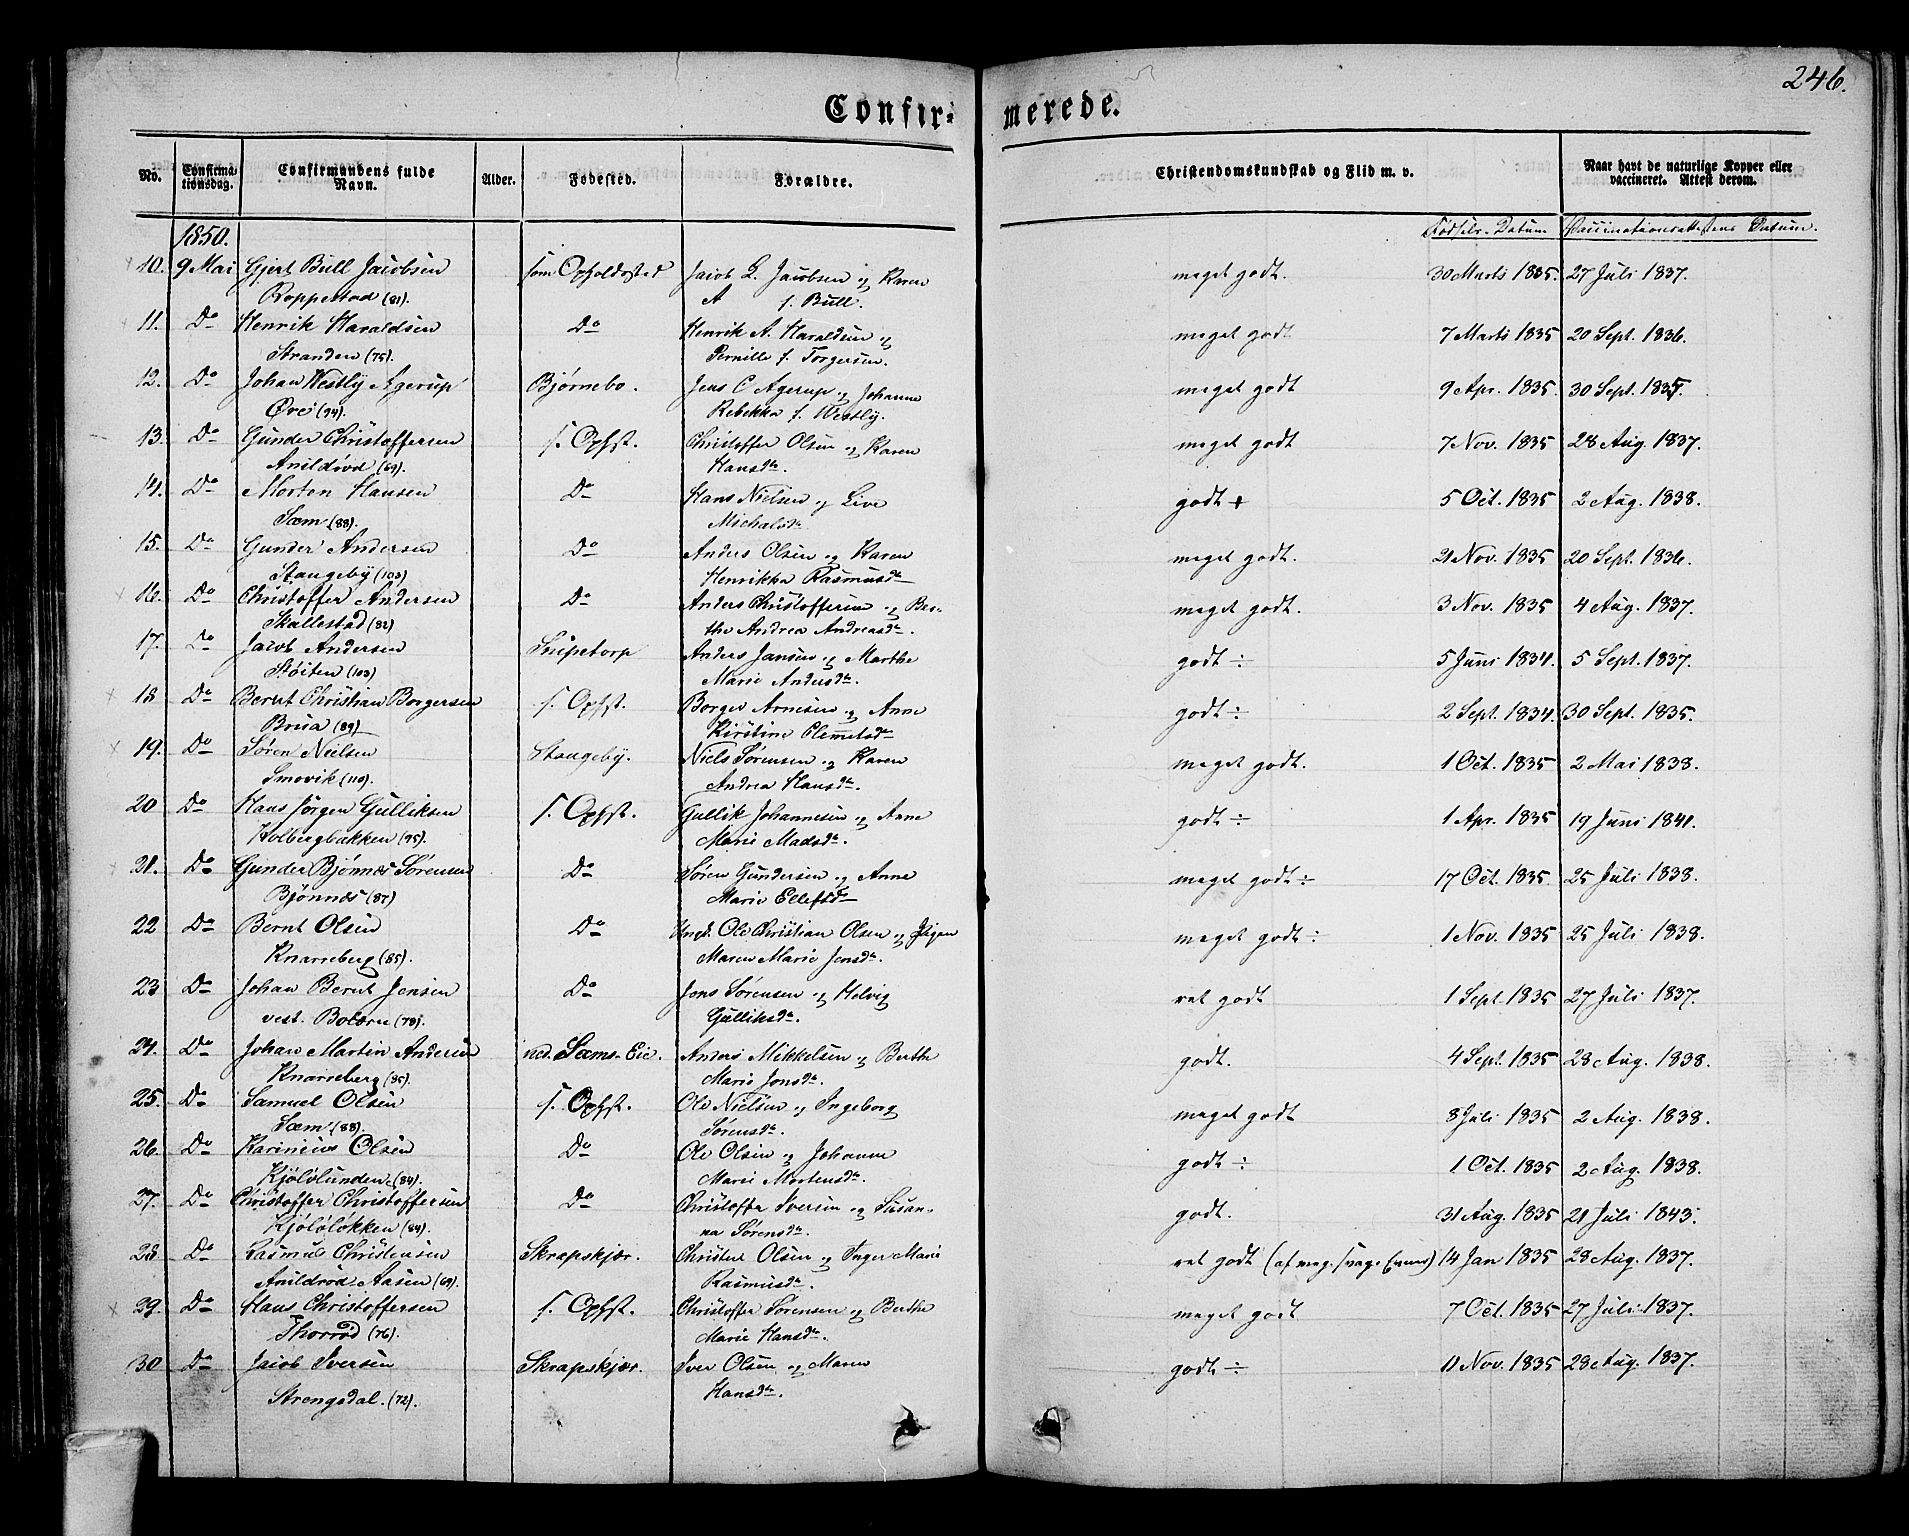 246.
Confir- merede.
No. Confirmationsdag. Confirmandens fulde Navn. Alder. Fødested. Forældre. Christendomskundskab og Flid m. v. Naar havt de naturlige Kopper eller vaccineret. Attest derom.
1850. Fødsels-Datum Vaccinationsattestens Datum.
10. 9 Mai Gjert Bull Jacobsen som Opholdssted Jacob L. Jacobsen og Karen meget godt. 30 Marts 1835. 27 Juli 1837.
Roppestad (81). A f. Bull.
11. Do Henrik Haraldsen Do Henrik A. Haraldsen og meget godt 7 Marts 1835 20 Sept. 1836.
Stranden (75). Pernille f. Torgersen.
12. Do Johan Westly Agerup Bjørnebo. Jens C Agerup og Johanne meget godt 9 Apr. 1835 30 Sept. 1835.
Øvre (94). Rebekka f. Westly.
13. Do Gunder Christoffersen f. Ophst. Christoffer Olsen og Karen meget godt 7 Nov. 1835 28 Aug. 1837.
Arildrød (69). Hansdr.
14. Do Morten Hansen Do Hans Nielsen og Live godt + 5 Oct. 1835 2 Aug. 1838.
Sæm (88). Michalsdr
15. Do Gunder Andersen Do Anders Olsen og Karen meget godt. 21 Nov. 1835 20 Sept. 1836.
Stangeby (103) Henrikka Rasmusdr
16. Do Christoffer Andersen Do Anders Christoffersen og Ber- meget godt. 3 Nov. 1835 4 Aug. 1837.
Skallestad (82) the Andrea Andreasdr.
17. Do Jacob Andersen Snipetorp Anders Jansen og Marthe godt ÷ 5 Juni 1834. 5 Sept. 1837.
Støiten (103) Marie Andersdr.
18 Do Bernt Christian Borgersen f. Ophst. Borger Arnesen og Anne godt ÷ 2 Sept. 1834. 30 Sept. 1835.
Brua (89) Kirstine Clemetsdr
19. Do Søren Nielsen Stangeby. Niels Sørensen og Karen meget godt. 1 Oct. 1835 2 Mai 1838.
Smovik (110). Andrea Hansdr.
20 Do Hans Jørgen Gulliksen f. Ophst. Gullik Johannesen og Anne godt ÷ 1 Apr. 1835 19 Juni 1841.
Holbergbakken (95). Marie Madsdr.
21. Do Gunder Bjønnes Sørensen Do Søren Gundersen og Anne meget godt ÷ 17 Oct. 1835. 25 Juli 1838.
Bjønnes (87) Marie Ellefsdr
22 Do Bernt Olsen Do Ungk. Ole Christian Olsen og Pigen meget godt ÷ 1 Nov. 1835 25 Juli 1838.
Knarreberg (85). Maren Marie Jensdr.
23 Do Johan Bernt Jensen Do Jens Sørensen og Helvig ret godt 1 Sept. 1835 27 Juli 1837.
vest. Bolærn (78). Gulliksdr.
24. Do Johan Martin Andersen ned. Sæms-Eie. Anders Mikkelsen og Berthe godt. 4 Sept. 1835 28 Aug. 1838.
Knarreberg (85). Marie Jonsdr.
25. Do Samuel Olsen f. Ophst. Ole Nielsen og Ingeborg meget godt 8 Juli 1835 2 Aug. 1838.
Sæm (88). Sørensdr.
26. Do Karinius Olsen Do Ole Olsen og Johanne godt ÷ 1 Oct. 1835 2 Aug. 1838.
Kjølølunden (84). Marie Mortensdr.
27. Do Christoffer Christoffersen Do Christoffer Iversen og Susan- godt. 31 Aug. 1835 21 Juli 1843.
Kjøløløkken (84). na Sørensdr.
28. Do Rasmus Christensen Skrapskjær. Christen Olsen og Inger Marie ret godt (af meg. svage Evner) 14 Jan 1835 28 Aug. 1837.
Arildrød Aasen (69). Rasmusdr.
29. Do Hans Christoffersen f. Ophst. Christoffer Sørensen og Berthe meget godt 7 Oct. 1835 27 Juli 1837.
Thorrød (76). Marie Hansdr.
30 Do Jacob Iversen Skrapskjær. Iver Olsen og Maren godt ÷ 11 Nov. 1835 28 Aug. 1837.
Strengsdal. (72). Hansdr.